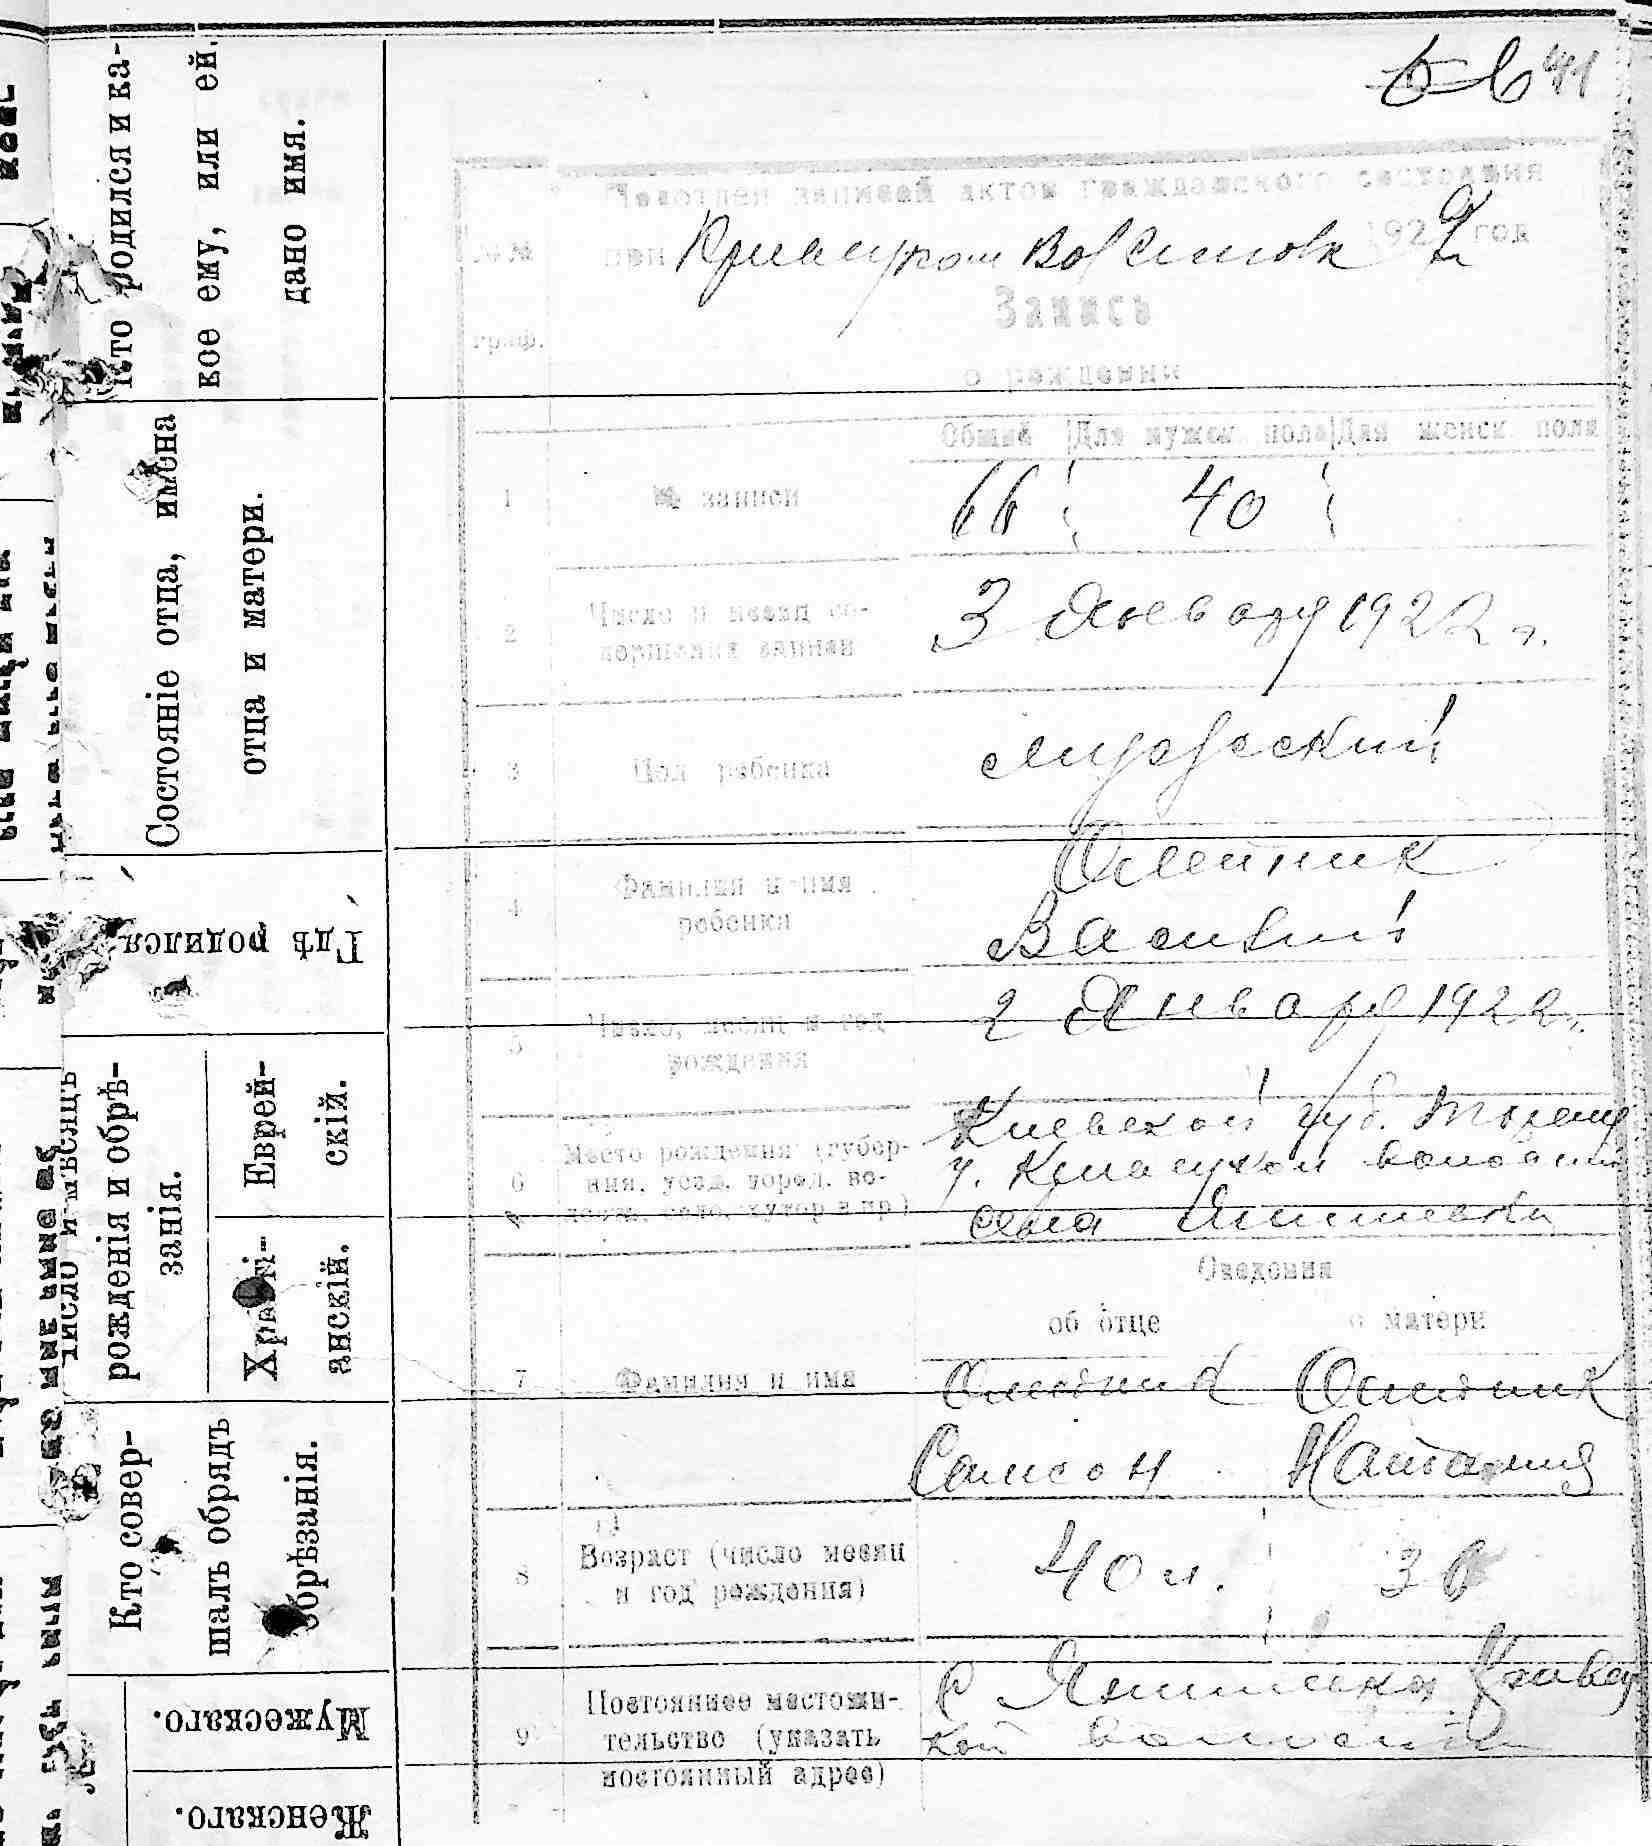 41
Подотдел записей актов гражданского состояния
№№
при Волисполк 1922 год
Запись
граф.
о рождении
Общий Для мужск. пола Для женск. пола
1 № записи 66 40
2 Число и месяц со-
вершения записи
3 Января 1922 г.
3 Пол ребенка Мужеский
4 Фамилия и имя
ребенка
Олейник
Василий
5 Число, месяц и год
рождения
2 Января 1922 г.
6 Место рождения (губер-
ния, уезд, город, во-
лость, село, хутор и пр)
Киевской губ.
у. волости
села Янишевки
Сведения
об отце о матери
7 Фамилия и имя
Олейник Олейник
Самсон Наталия
8 Возраст (число месяц
и год рождения)
40 л. 36
9 Постоянное местожи-
тельство (указать
постоянный адрес)
с Янишевки
кой волости
Кто родился и ка-
кое ему, или ей,
дано имя.
Состояніе отца, имена
отца и матери.
Гдѣ родился.
Число и мѣсяцъ
рожденія и обрѣ-
занія.
Еврей-
скій.
Христі-
анскій.
Кто совер-
шалъ обрядъ
обрѣзанія.
Мужескаго.
Женскаго.